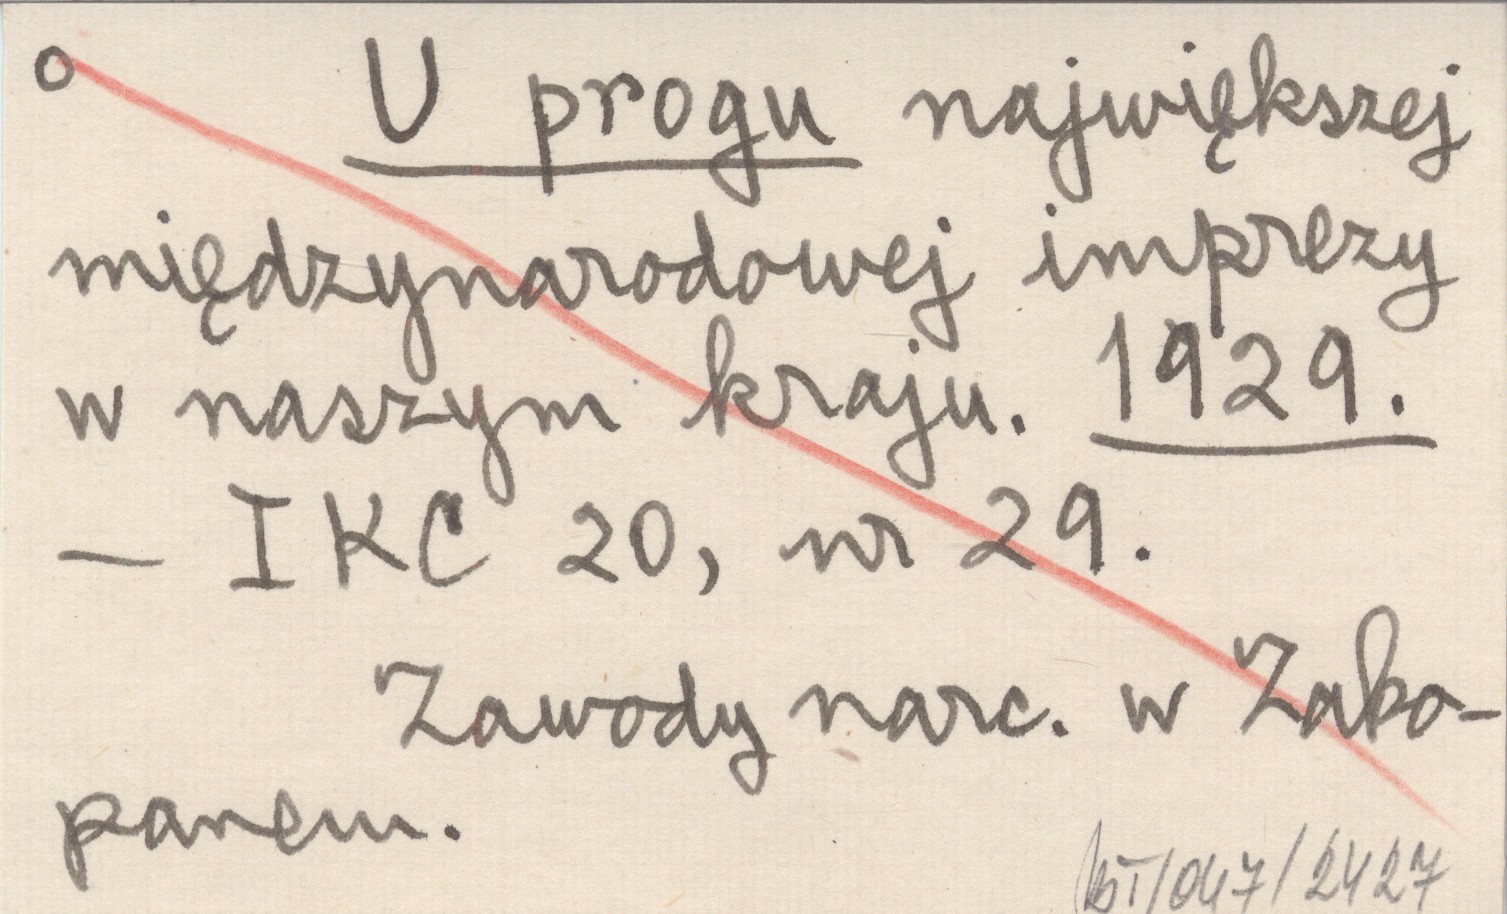 o U progu największej
międzynarodowej imprezy
w naszym kraju. 1929.
— IKC 20, nr 29.
Zawody narc. w Zako-
panem.
/047/2427